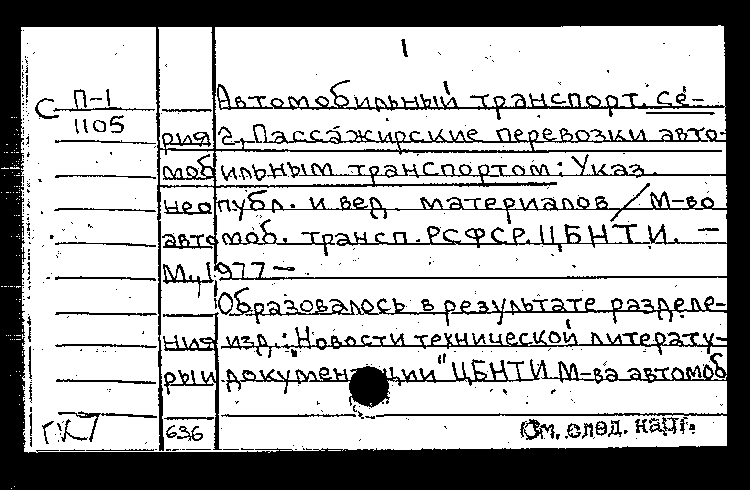 1
С П-1
1105
Автомобильный транспорт. Се-
рия 2, Пассажирские перевозки авто-
мобильным транспортом: Указ.
неопубл. и вед. материалов / М-во
автомоб. трансп. РСФСР. ЦБНТИ. —
М., 1977 —
Образовалось в результате разделе-
ния изд.: "Новости технической литерату-
ры и документации" ЦБНТИ М-ва автомоб
636
См. след. карт.